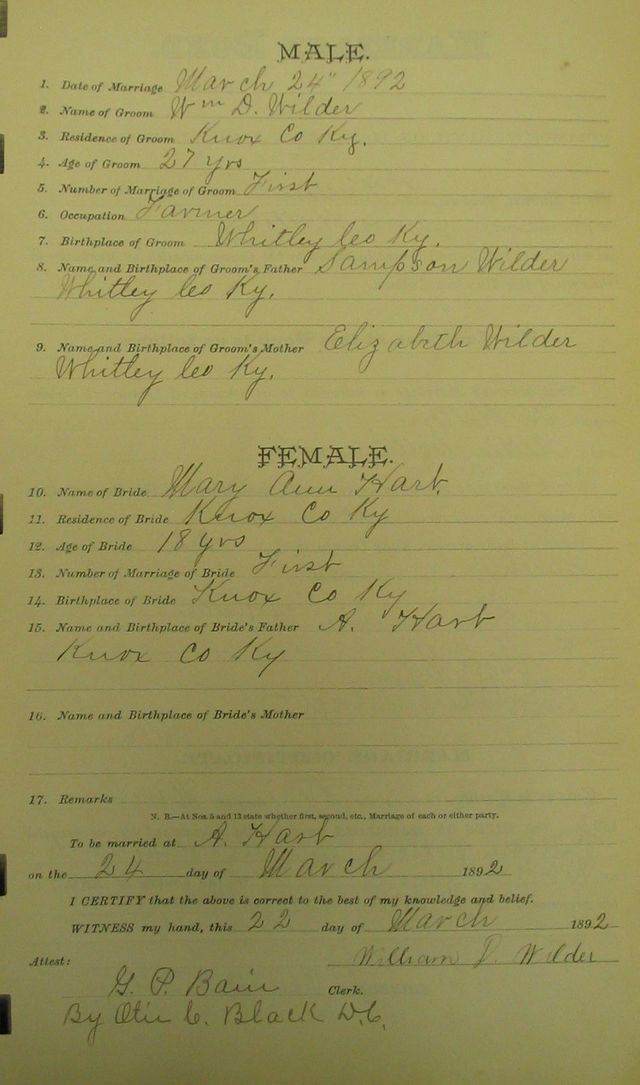 MALE.
1. Date of Marriage March 24" 1892
2. Name of Groom Wm D. Wilder
3. Residence of Groom Knox Co Ky.
4. Age of Groom 27 yrs
5. Number of Marriage of Groom First
6. Occupation Farmer
7. Birthplace of Groom Whitley Co Ky.
8. Name and Birthplace of Groom's Father Sampson Wilder
Whitley Co Ky.
9. Name and Birthplace of Groom's Mother Elizabeth Wilder
Whitley Co Ky.
FEMALE.
10. Name of Bride Mary Ann Hart.
11. Residence of Bride Knox Co Ky
12. Age of Bride 18 yrs
13. Number of Marriage of Bride First
14. Birthplace of Bride Knox Co Ky
15. Name and Birthplace of Bride's Father A. Hart
Knox Co Ky
16. Name and Birthplace of Bride's Mother
17. Remarks
N. B.—At Nos. 5 and 13 state whether first, second, etc., Marriage of each or either party.
To be married at A. Hart
on the 24 day of March 1892
I CERTIFY that the above is correct to the best of my knowledge and belief.
WITNESS my hand, this 22 day of March 1892
William D. Wilder
Attest:
G. P. Bain Clerk.
By Otis C. Black D.C.